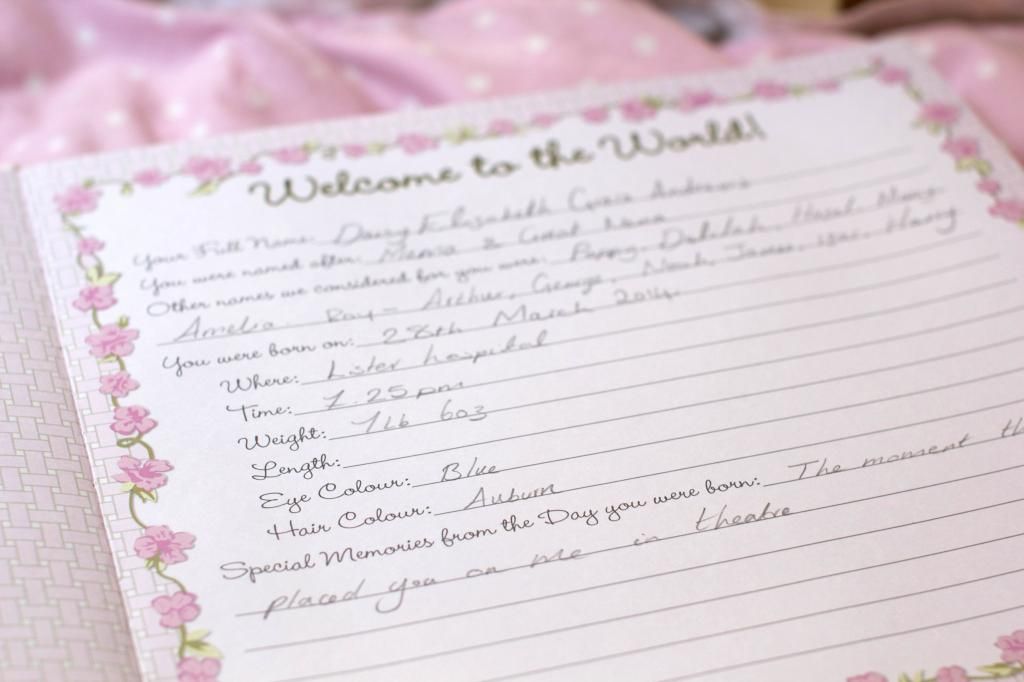 Welcome to the World!
Your Full Name: Daisy Elizabeth Grace
You were named after: & Great Nana
Other names we considered for you were: Poppy, Delilah, Hazel,
Amelia. Boy - Arthur, George, Noah, James, Harry
You were born on: 28th March 2014.
Where: Lister hospital
Time: 1.25pm
Weight: 7lb 6oz
Length:
Eye Colour: Blue
Hair Colour: Auburn
Special Memories from the Day you were born: The moment
placed you on me in theatre